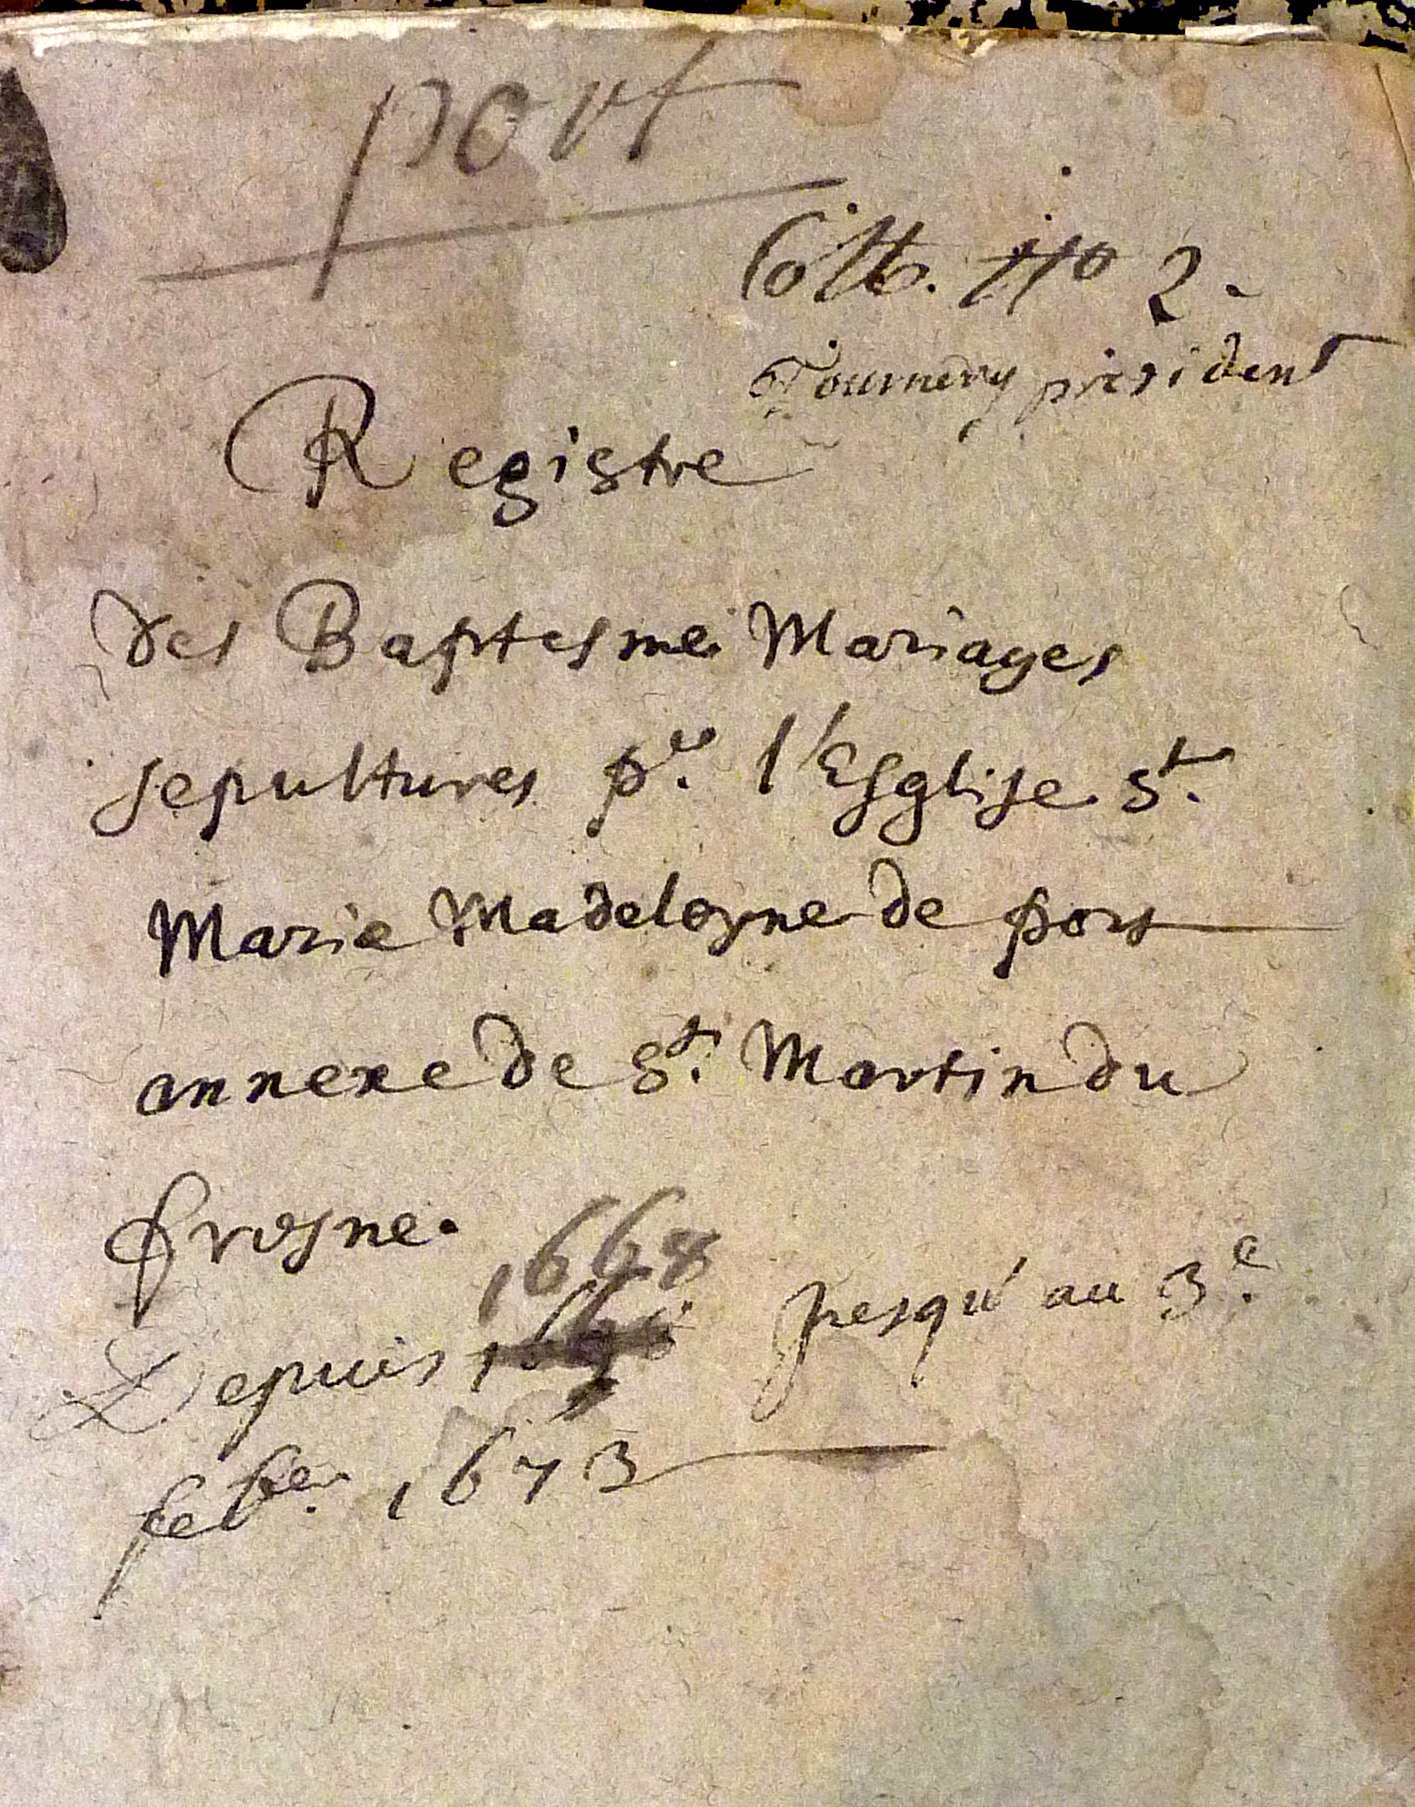 port
Cotte. No 2.
Tournery president
Registre
des Baptesmes Mariages
sepultures pr. l'Esglise Ste.
Marie Madeleyne de pors
annexe de St. Martin du
fresne.
1668
Depuis jusqu'au 3e.
feber. 1673